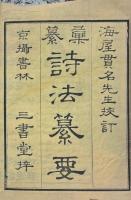 海屋貫名先生挍訂
纂藥詩法纂要
京攝書林 三書堂梓